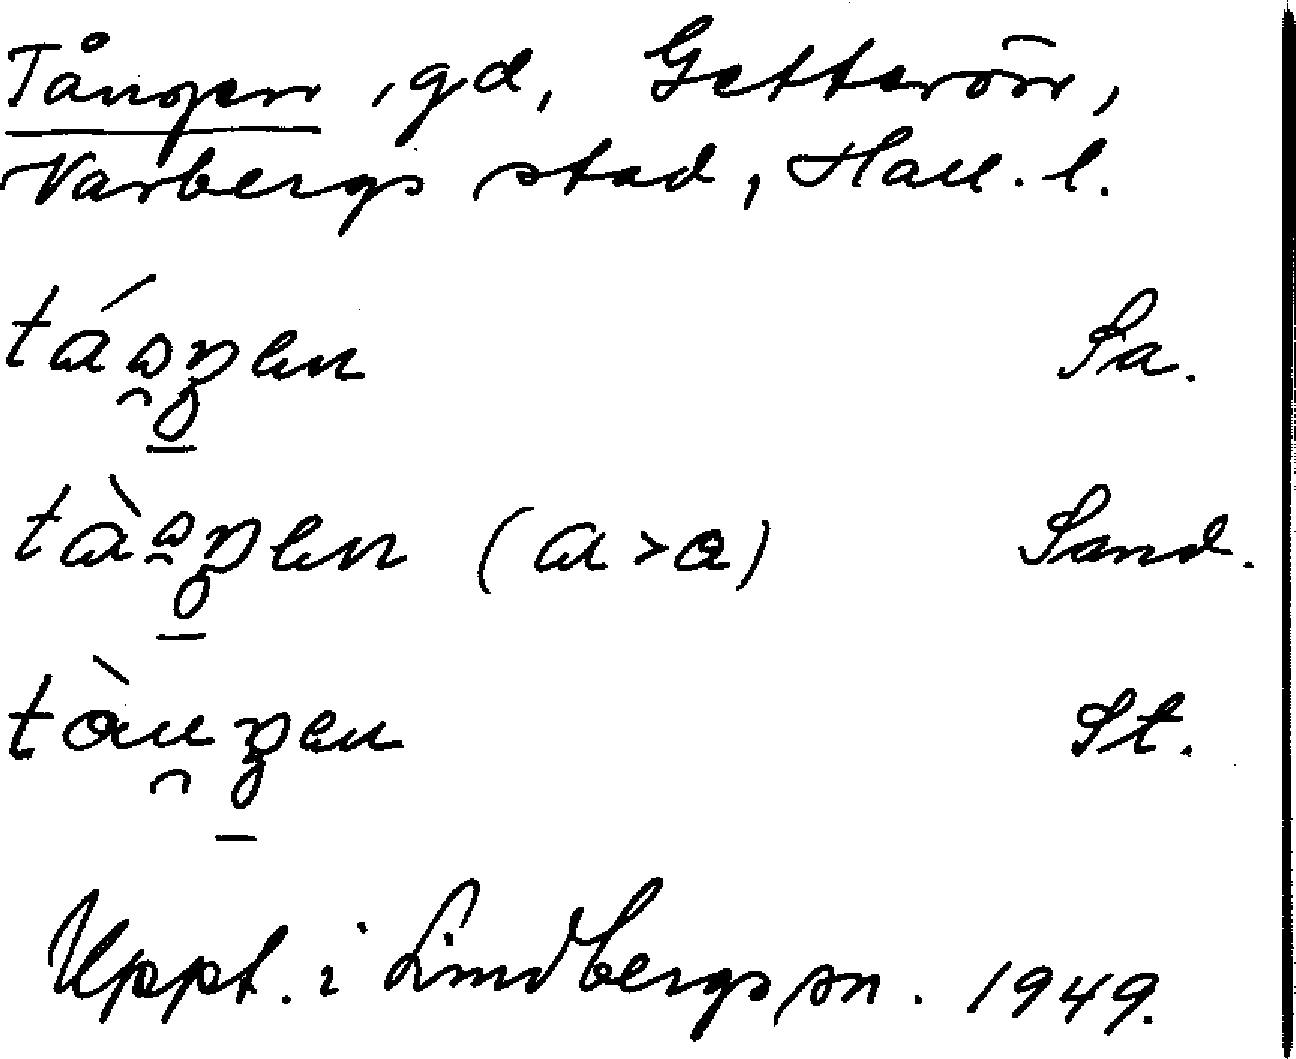 Tången, gd, Getterön,
Varbergs stad, Hall. l.
Sa.
(ɑ > a) Sand.
St.
Uppt. i Lindbergs sn. 1949.